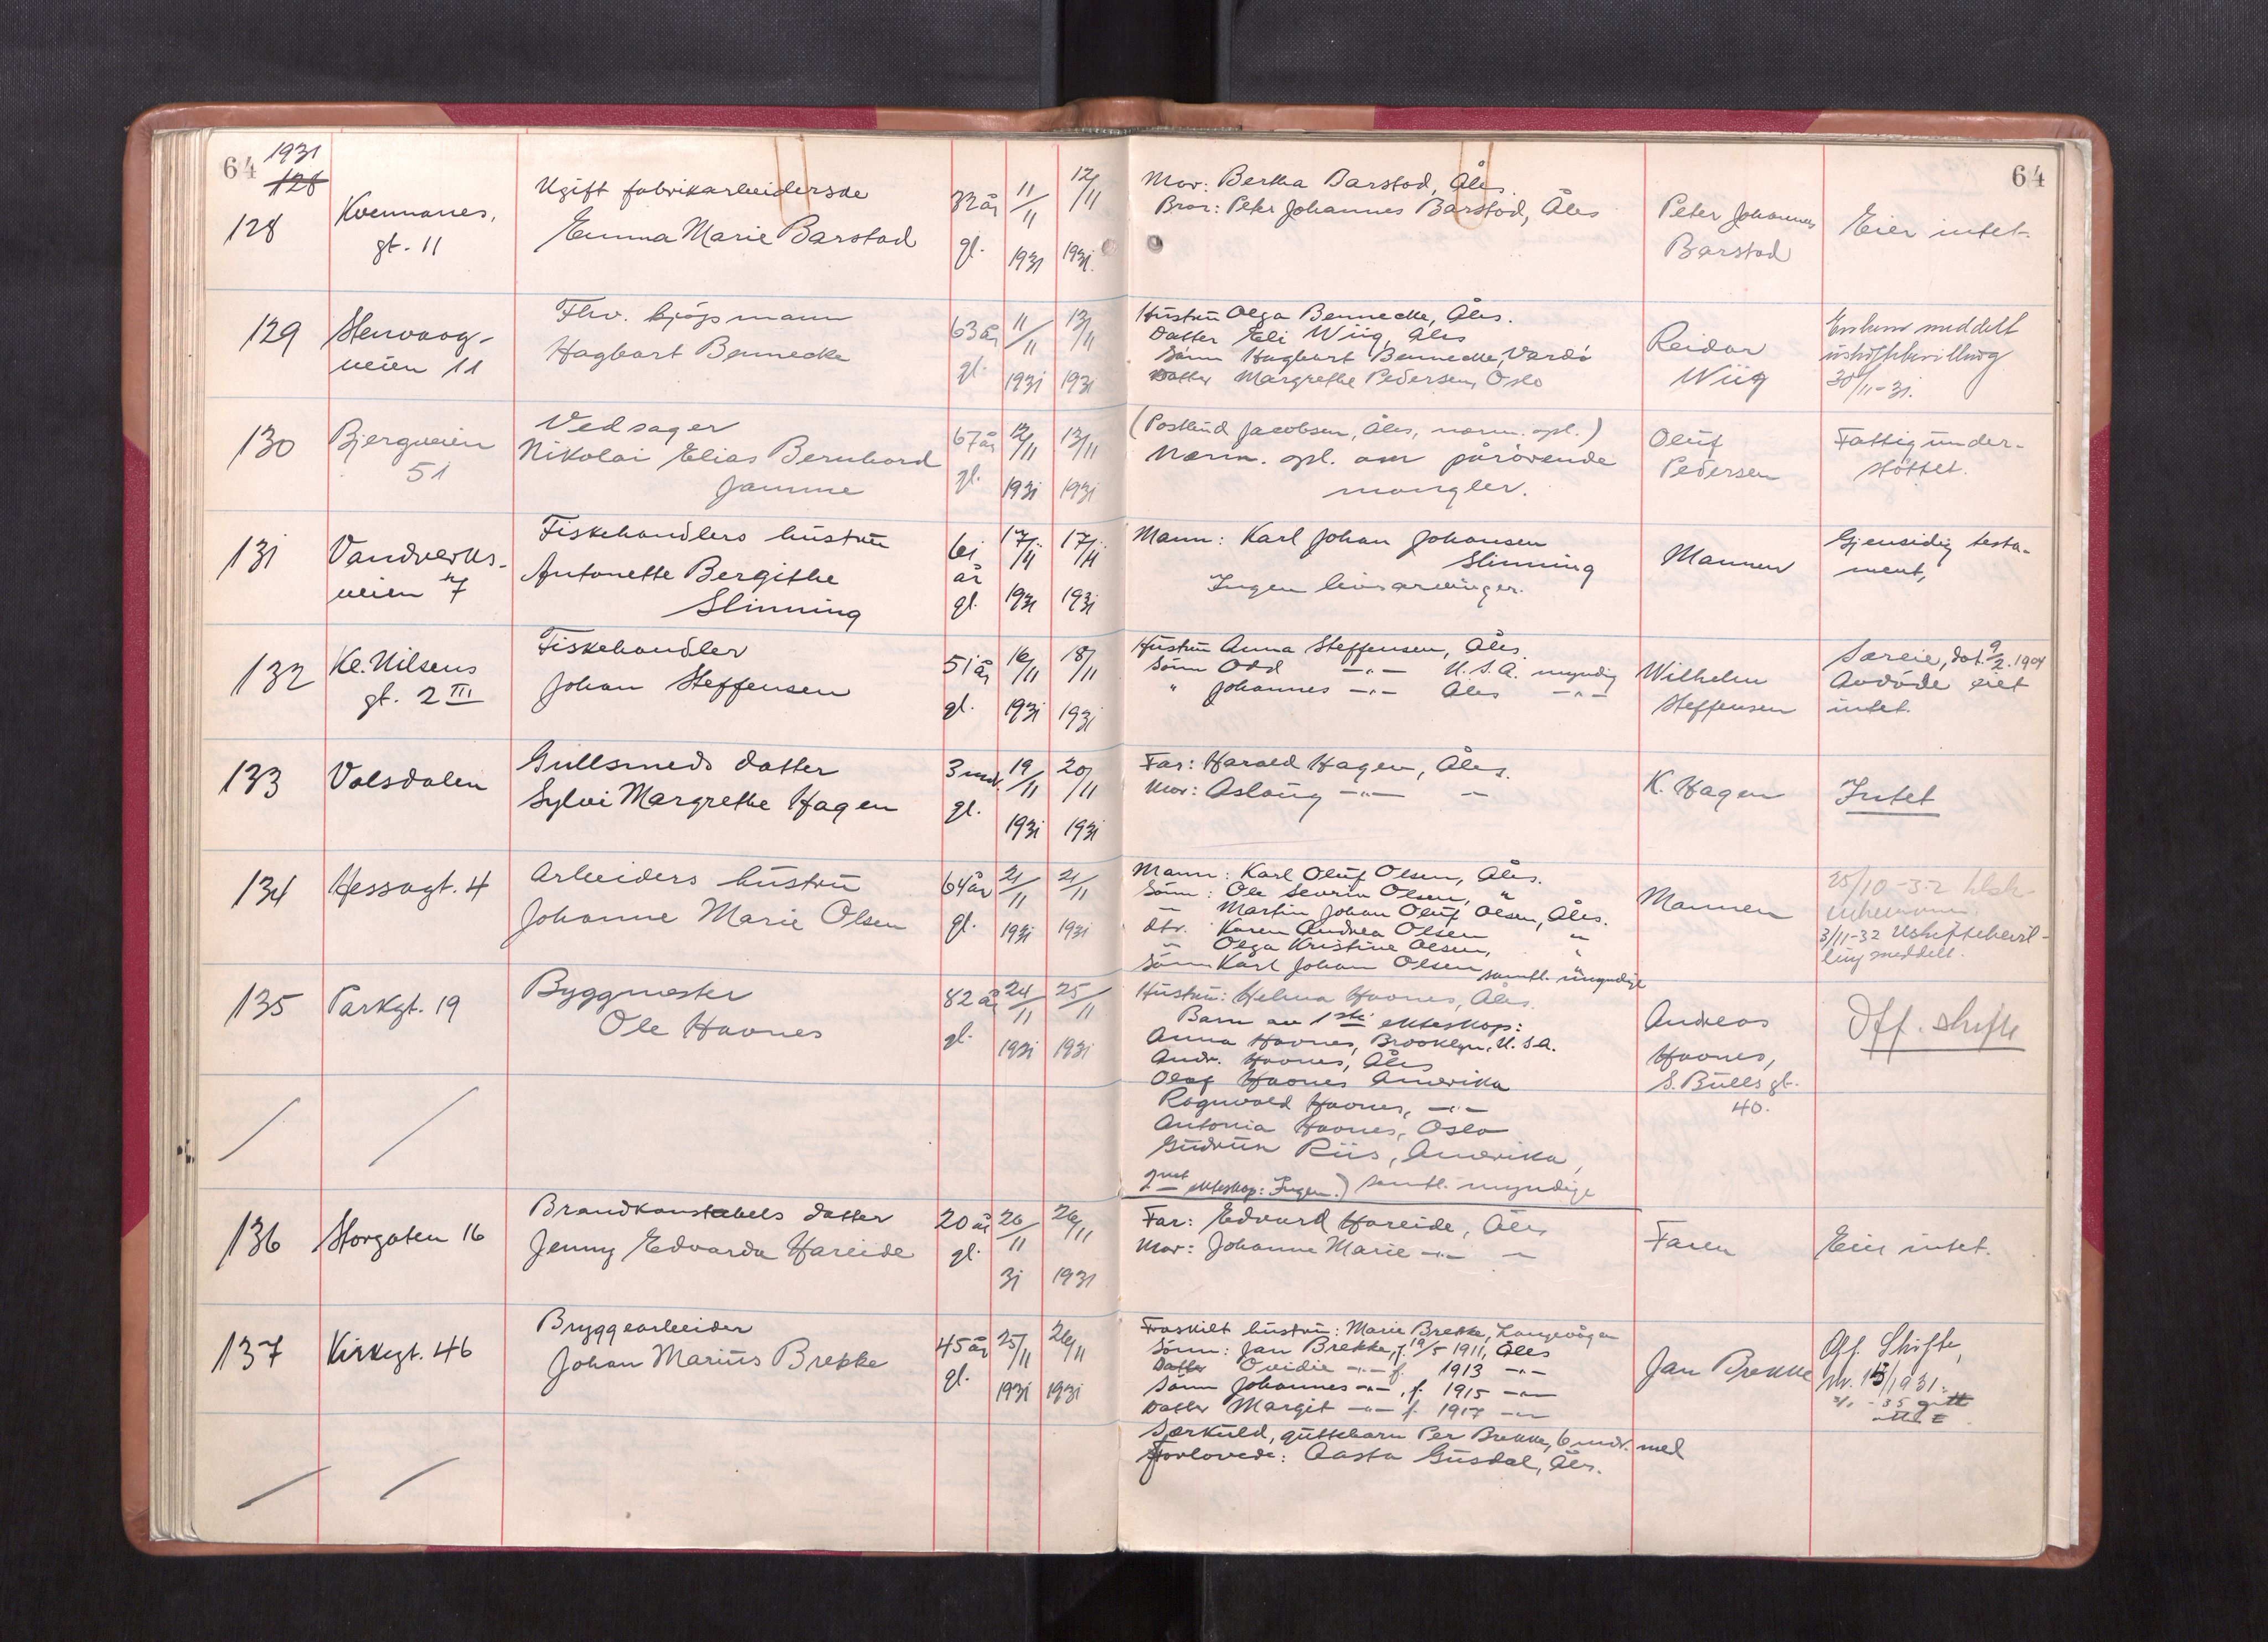 64 1931 64
128
128 Kvennanes,
gt. 11
Ugift fabrikarbeiderske
Emma Marie Barstad
32 år
gl.
11/11
1931
12/11
1931.
Mor: Bertha Barstad, Åles.
Bror: Peter Johannes Barstad, Åles
Peter Johannes
Barstad
Eier intet.
129 Stenvaag-
veien 11
Fhv. kjøpmann
Hagbart Bennecke
63 år
gl.
11/11
1931
13/11
1931
Hustru Olga Bennecke, Åles.
Datter Eli Wiig, Åles
Sønn Hagbart Bennecke, Vardø
Datter Margrethe Pedersen, Oslo
Reidar
Wiig
Enken meddelt
uskiftebevilling
30/11-31.
130 Bjergveien
51
Vedsager
Nikolai Elias Bernhard
Jamme
67 år
gl.
12/11
1931
13/11
1931
(Postbud Jacobsen, Åles, nærm. opl.)
Nærm. opl. om pårørende
mangler.
Oluf
Pedersen
Fattigunder-
støttet.
131 Vandverks-
veien 7
Fiskehandlers hustru
Antonette Bergithe
Slinning
61
år
gl.
17/11
1931
17/11
1931
Mann: Karl Johan Johansen
Slinning
Ingen livsarvinger.
Mannen
Gjensidig testa-
ment,
132 Kl. Nilsens
gt. 2 III
Fiskehandler
Johan Steffensen
51 år
gl.
16/11
1931
18/11
1931
Hustru Anna Steffensen, Åles.
Sønn Odd —"— U.S.A. myndig
" Johannes —"— Åles —"—
Wilhelm
Steffensen
Særeie, dat. 9/2.1904
Avdøde eiet
intet.
133 Volsdalen
Gullsmeds datter
Sylvi Margrethe Hagen
3 mdr.
gl.
19/11
1931
20/11
1931
Far: Harald Hagen, Åles.
Mor: Aslaug —"— —
K. Hagen
Intet
134 Hessagt. 4
Arbeiders hustru
Johanne Marie Olsen
64 år
gl.
21/11
1931
21/11
1931
Mann: Karl Oluf Olsen, Åles.
Sønn: Ole Severin Olsen, "
— Martin Johan Oluf Olsen, Åles.
dtr. Karen Andrea Olsen "
— Olga Kristine Olsen, "
Sønn Karl Johan Olsen samtl. umyndige
Mannen
25/10-32
3/11-32 Uskiftebevil-
ling meddelt.
135 Parkgt. 19
Byggmester
Ole Havnes
82 år
gl.
24/11
1931
25/11
1931
Hustru: Helma Havnes, Åles.
Barn av 1ste ekteskap:
Anna Havnes, Brooklyn, U.S.A.
Andr. Havnes, Åles
Olaf Havnes Amerika
Ragnvald Havnes, —"—
Antonia Havnes, Oslo
Gudrun Riis, Amerika,
2net ekteskap: Ingen.) samtl. myndige
Andreas
Havnes,
S. Bulls gt.
40.
Off. skifte
136 Storgaten 16
Brandkonstabels datter
Jenny Edvarda Hareide
20 år
gl.
26/11
31
26/11
1931
Far: Edvard Hareide, Åles
Mor: Johanne Marie —"— —
Faren
Eier intet.
137 Kirkegt. 46
Bryggearbeider
Johan Marius Brekke
45 år
gl.
25/11
1931
26/11
1931
Fraskilt hustru: Marie Brekke, Langevågen
Sønn: Jan Brekke, f. 19/5 1911, Åles
Datter Ovidie —"— f. 1913 —"—
Sønn Johannes —"—, f. 1915 —"—
Datter Margit —"— f. 1917 —"—
Særkuld, guttebarn Per Brekke, 6 mdr. med
Forlovede: Aasta Gusdal, Åles.
Jan Brekke
Off. Skifte,
nr. 15/1931.